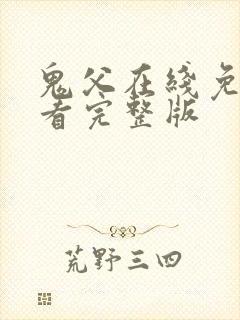 鬼父在线免
看完整版
荒野三四